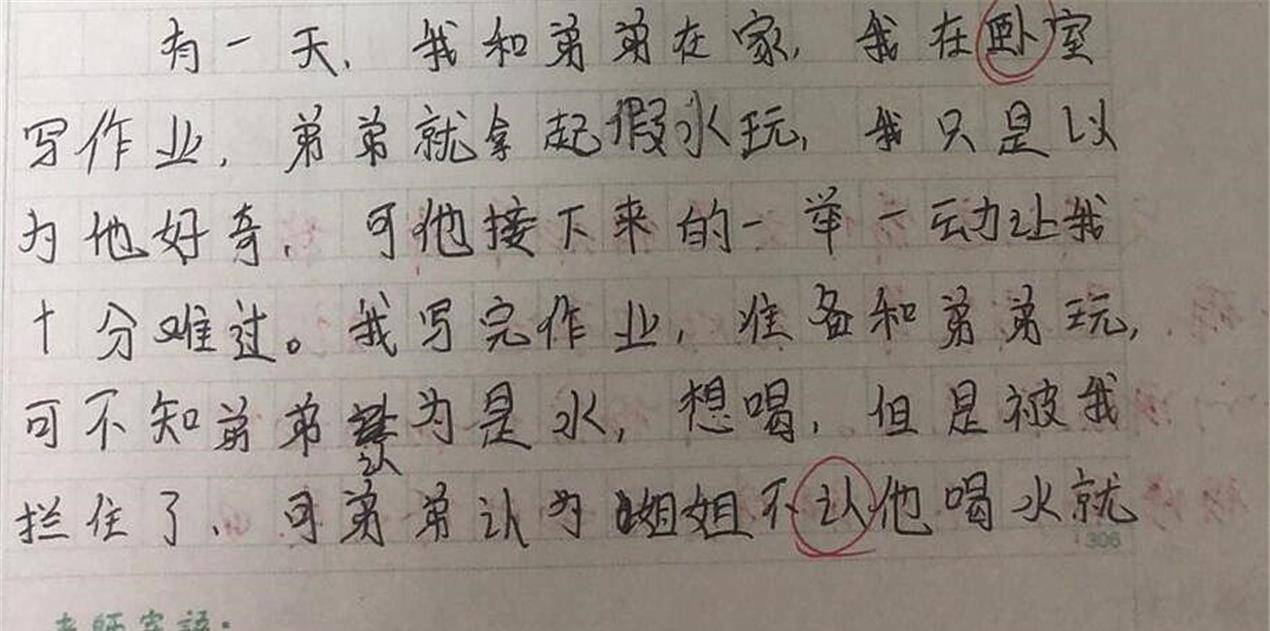 有一天,我和弟弟在家,我在卧室
写作业,弟弟就拿起假水玩,我只是以
为他好奇,可他接下来的一举一动让我
十分难过。我写完作业,准备和弟弟玩,
可不知弟弟认为是水,想喝,但是被我
拦住了,可弟弟认为姐姐不认他喝水就
306
老师寄语: